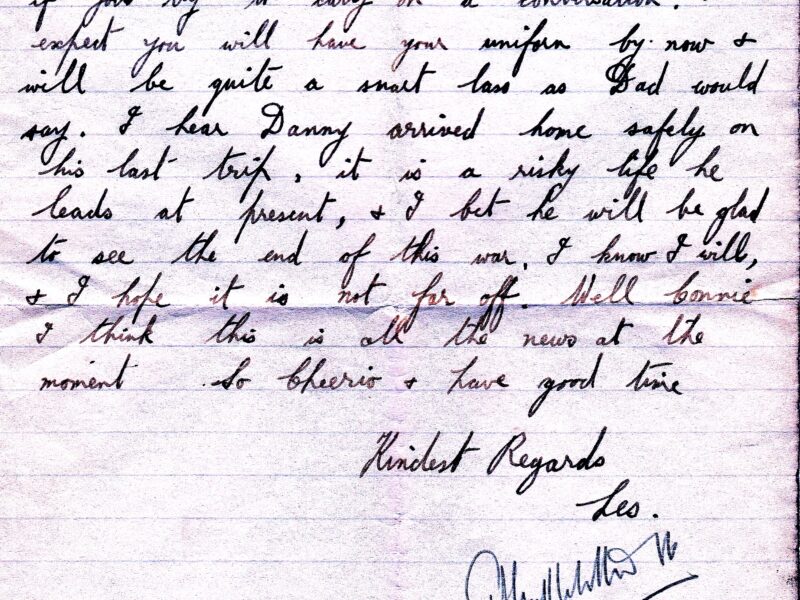 if you try to carry on a conversation.
expect you will have your uniform by now &
will be quite a smart lass as Dad would
say. I hear Danny arrived home safely on
his last trip, it is a risky life he
leads at present, & I bet he will be glad
to see the end of this war. I know I will,
& I hope it is not far off. Well Connie
I think this is all the news at the
moment So Cheerio & have good time
Kindest Regards
Les.